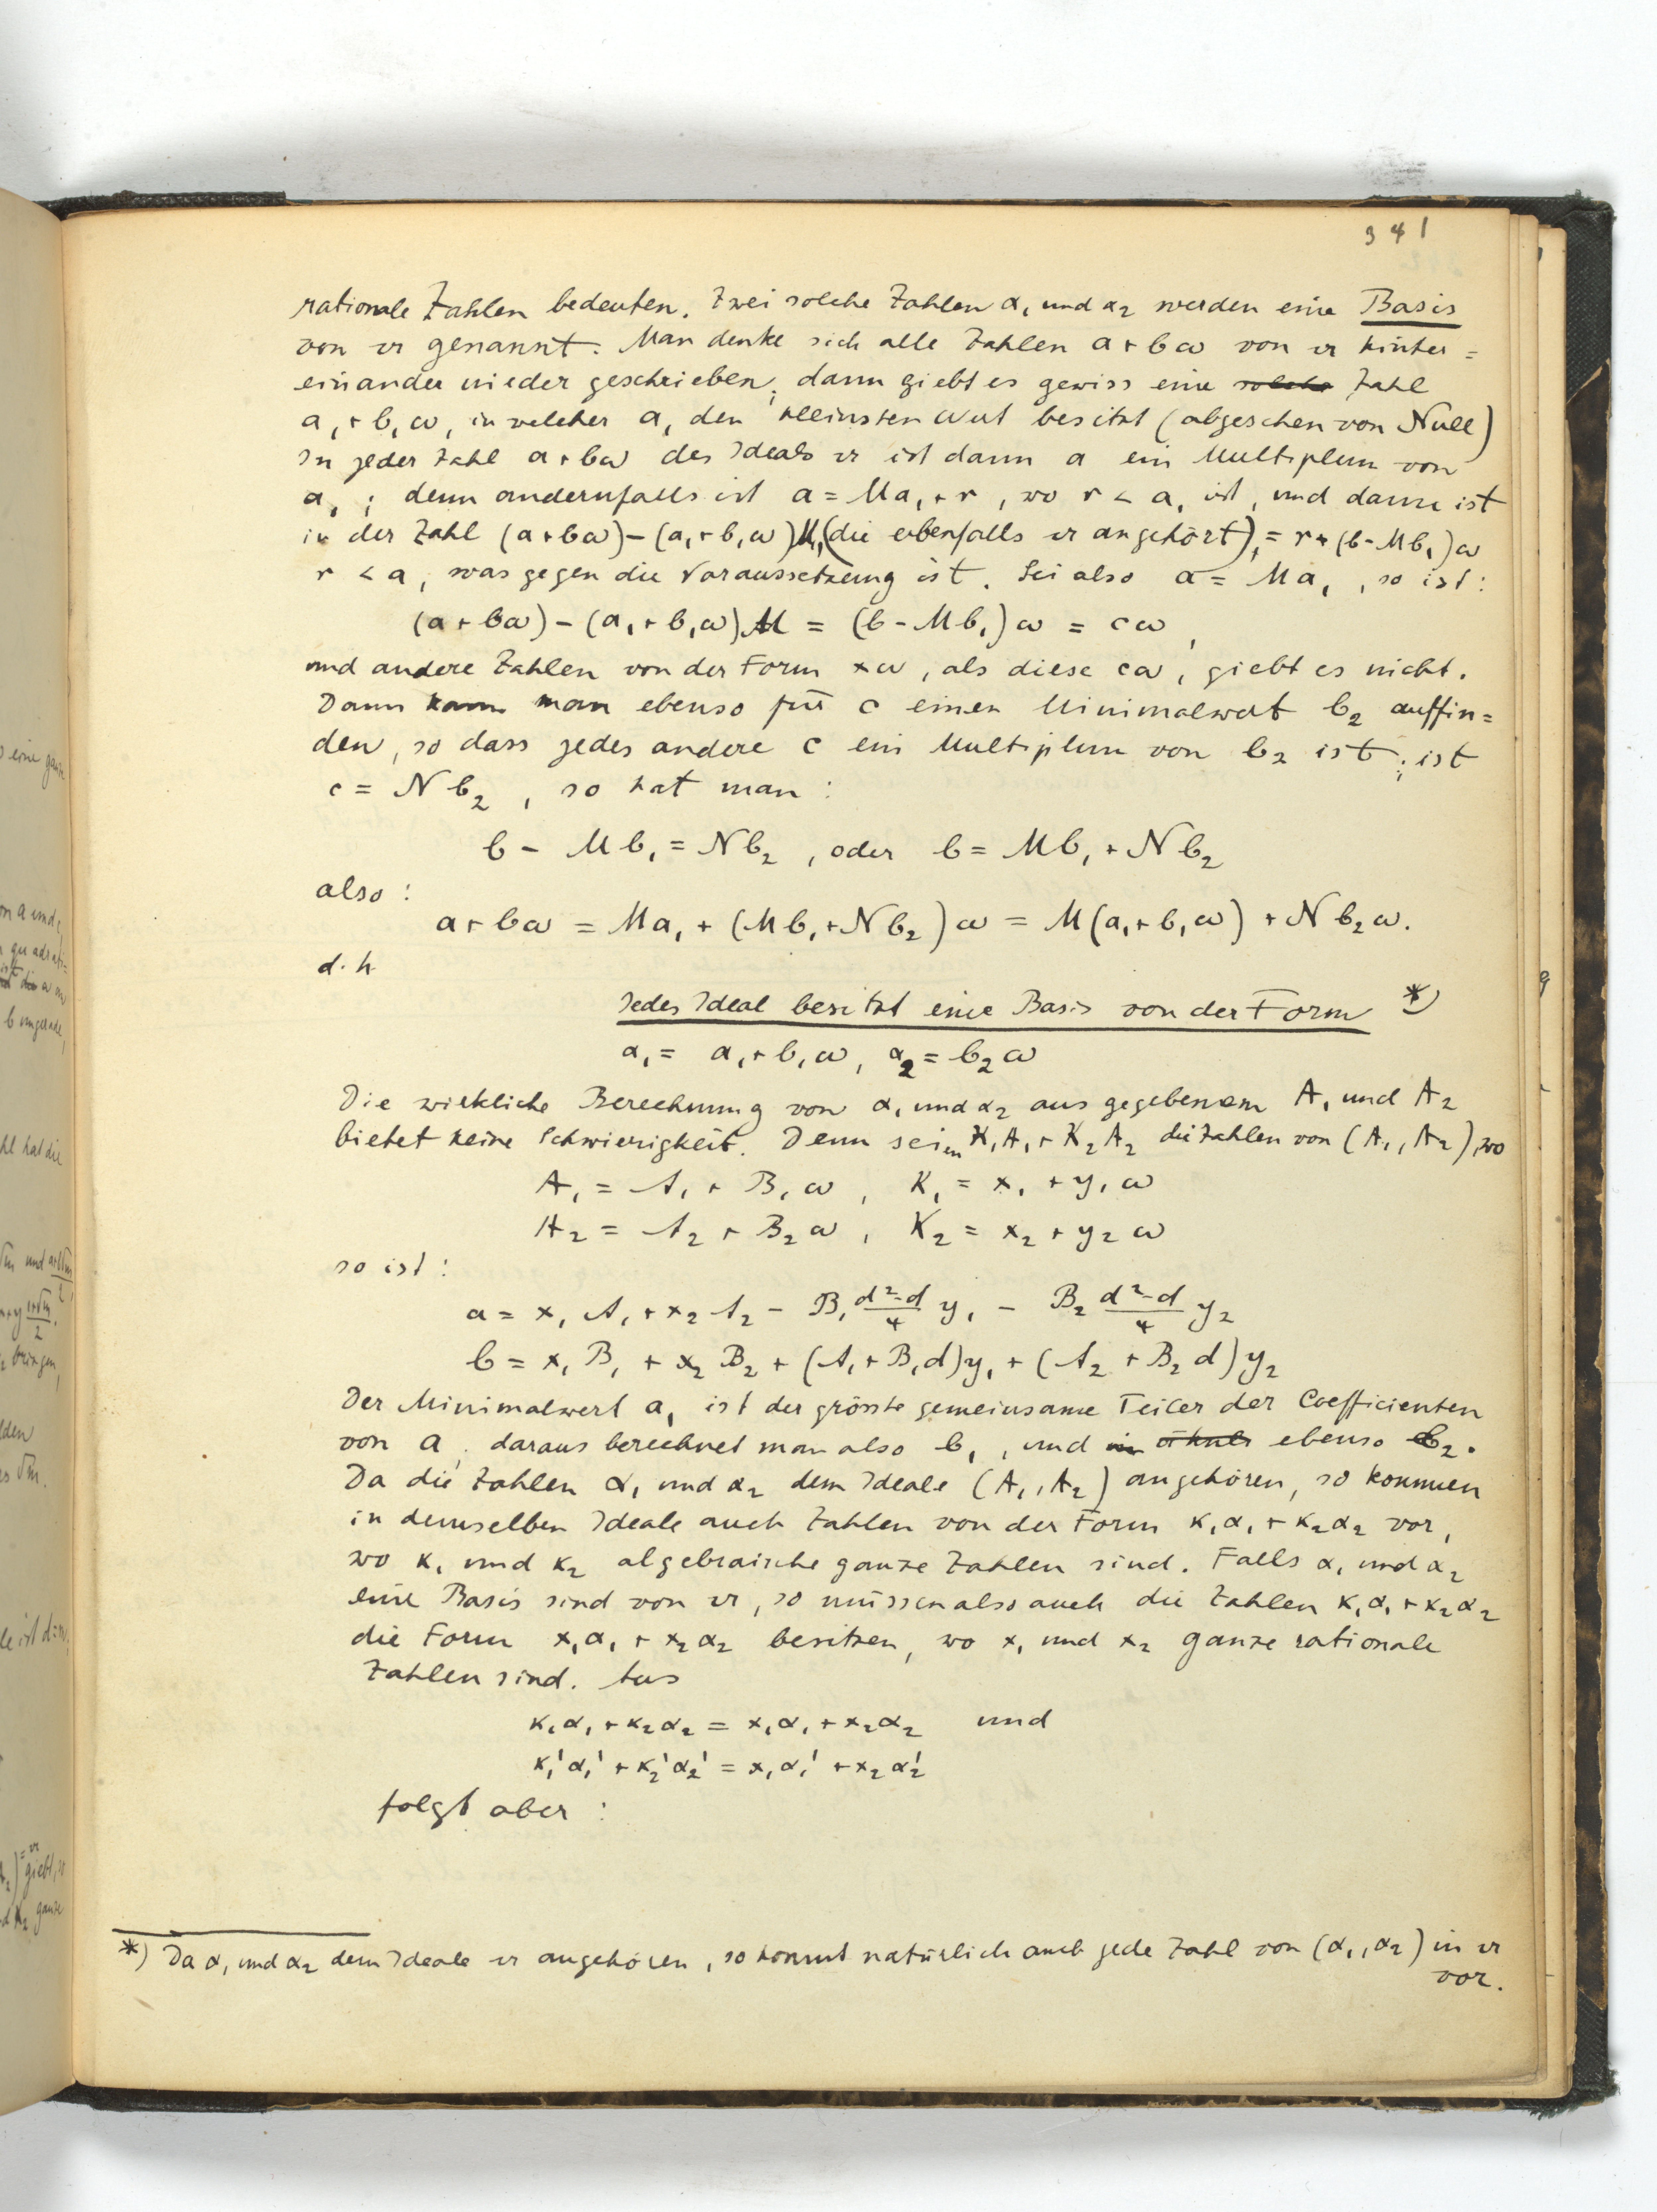 341
rationale Zahlen bedeuten. Zwei solche Zahlen α₁ und α₂ werden eine Basis
von 𝔞 genannt. Man denke sich alle Zahlen a + bω von 𝔞 hinter=
einander nieder geschrieben; dann giebt es gewiss eine solche Zahl
a₁ + b₁ω, in welcher a₁ den kleinsten Wert besitzt (abgesehen von Null)
In jeder Zahl a + bω des Ideals 𝔞 ist dann a ein Multiplum von
a₁; denn andernfalls ist a = Ma₁ + r, wo r < a₁ ist, und dann ist
in der Zahl (a + bω) – (a₁ + b₁ω)M, (die ebenfalls 𝔞 angehört), = r + (b – Mb₁)ω
r < a, was gegen die Voraussetzung ist. Sei also a = Ma₁, so ist:
(a + bω) – (a₁ + b₁ω)M = (b – Mb₁)ω = cω,
und andere Zahlen von der Form xω, als diese cω, giebt es nicht.
Dann kann man ebenso für c einen Minimalwert b₂ auffin=
den, so dass jedes andere c ein Multiplum von b₂ ist; ist
c = Nb₂, so hat man:
b – Mb₁ = Nb₂, oder b = Mb₁ + Nb₂
also:
a + bω = Ma₁ + (Mb₁ + Nb₂)ω = M(a₁ + b₁ω) + Nb₂ω.
d. h
Jedes Ideal besitzt eine Basis von der Form *)
α₁ = a₁ + b₁ω, α₂ = b₂ω
Die wirkliche Berechnung von α₁ und α₂ aus gegebenem A₁ und A₂
bietet keine Schwierigkeit. Denn seien K₁A₁ + K₂A₂ die Zahlen von (A₁, A₂), wo
A₁ = A₁ + B₁ω, K₁ = x₁ + y₁ω
A₂ = A₂ + B₂ω, K₂ = x₂ + y₂ω
so ist:
a = x₁A₁ + x₂A₂ – B₁ (d²–d)/4 y₁ – B₂ (d²–d)/4 y₂
b = x₁B₁ + x₂B₂ + (A₁ + B₁d)y₁ + (A₂ + B₂d)y₂
Der Minimalwert a₁ ist der grösste gemeinsame Teiler der Coefficienten
von a; daraus berechnet man also b₁, und ebenso b₂.
Da die Zahlen α₁ und α₂ dem Ideale (A₁, A₂) angehören, so kommen
in demselben Ideale auch Zahlen von der Form κ₁α₁ + κ₂α₂ vor,
wo κ₁ und κ₂ algebraische ganze Zahlen sind. Falls α₁ und α₂
eine Basis sind von 𝔞, so müssen also auch die Zahlen κ₁α₁ + κ₂α₂
die Form x₁α₁ + x₂α₂ besitzen, wo x₁ und x₂ ganze rationale
Zahlen sind. Aus
κ₁α₁ + κ₂α₂ = x₁α₁ + x₂α₂ und
κ₁'α₁' + κ₂'α₂' = x₁α₁' + x₂α₂'
folgt aber:
*) Da α₁ und α₂ dem Ideale 𝔞 angehören, so kommt natürlich auch jede Zahl von (α₁, α₂) in 𝔞
vor.